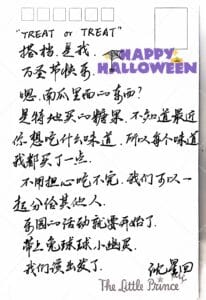 "TREAT or TREAT"
搭档,是我。
HAPPY
HALLOWEEN
万圣节快乐。
嗯,南瓜里面的东西?
是特地买的糖果,不知道最近
你想吃什么味道,所以每个味道
我都买了一点。
不用担心吃不完,我们可以一
起分给其他人。
乐园的活动就要开始了。
带上兔球球、小幽灵,
我们该出发了。
沈星回
The Little Prince